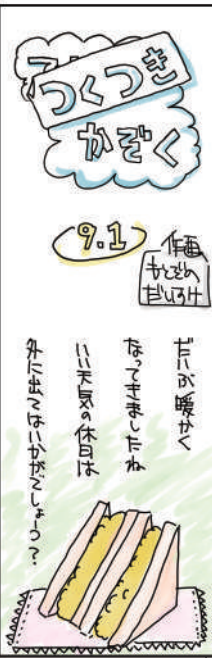 つくつき
かぞく
9.1
作画
もとぞの
だいすけ
だいぶ暖かく
なってきましたね
いい天気の休日は
外に出てはいかがでしょう？